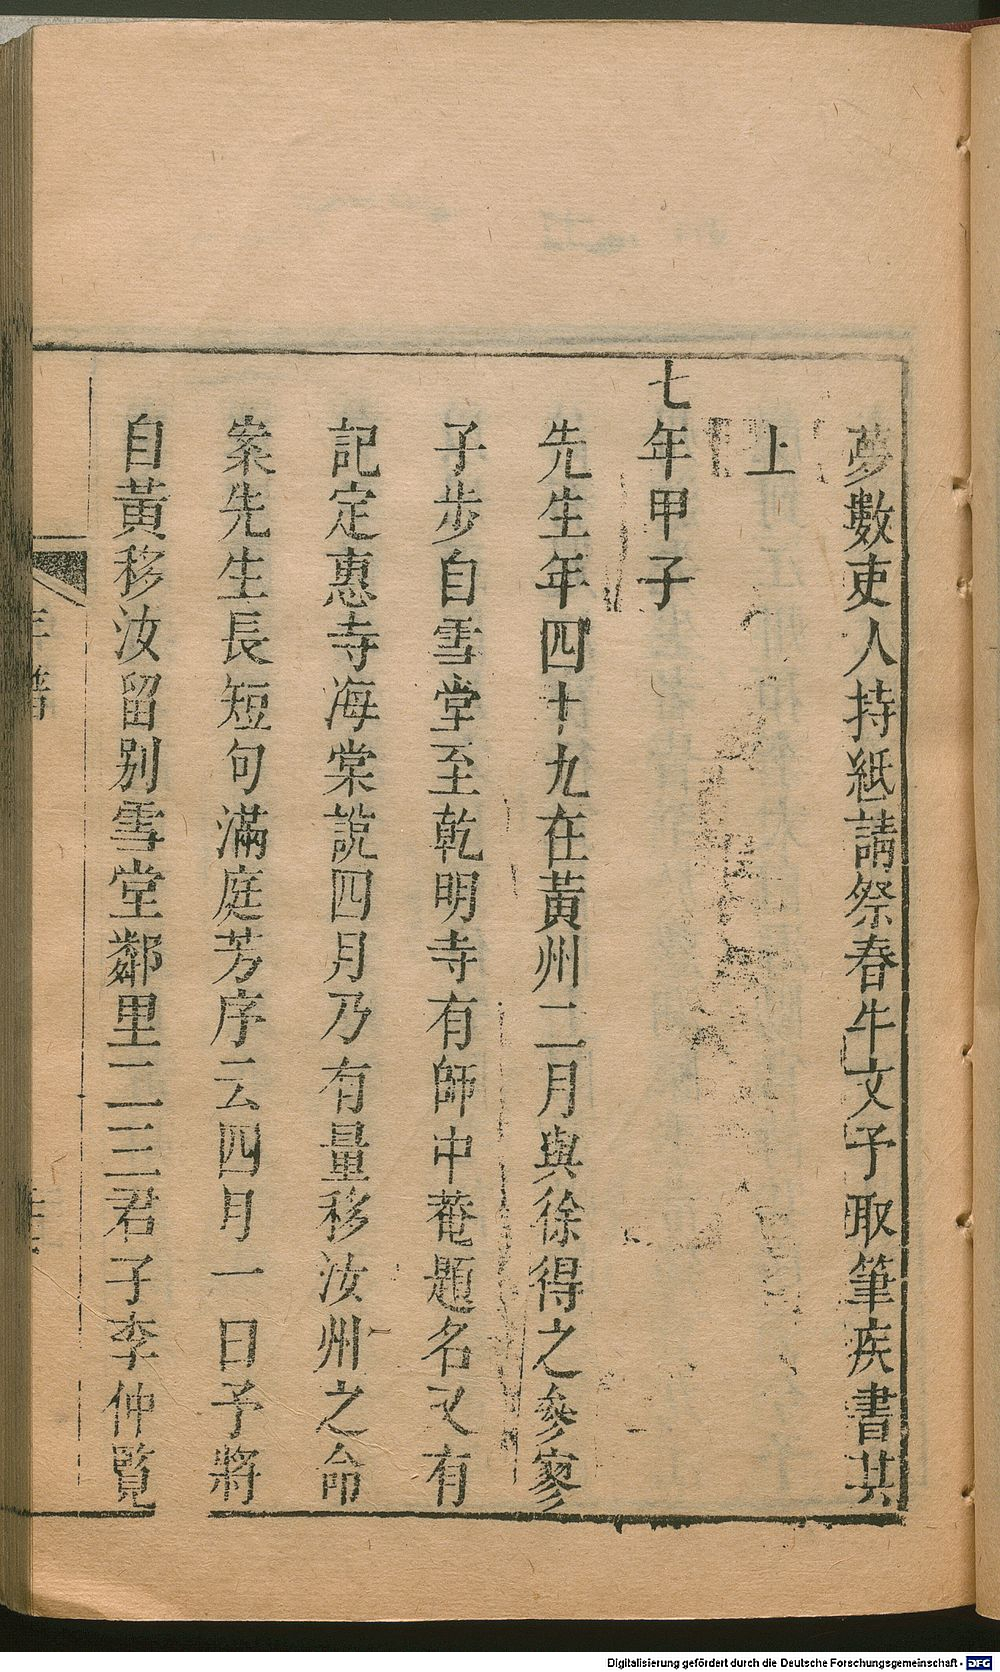 夢數吏人持紙請祭春牛文予取筆疾書其
上
七年甲子
先生年四十九在黃州二月與徐得之參寥
子步自雪堂至乾明寺有師中菴題名又有
記定惠寺海棠說四月乃有量移汝州之命
案先生長短句滿庭芳序云四月一日予將
自黃移汝留别雪堂鄰里二三君子李仲覽
Digitalisierung gefördert durch die Deutsche Forschungsgemeinschaft - DFG